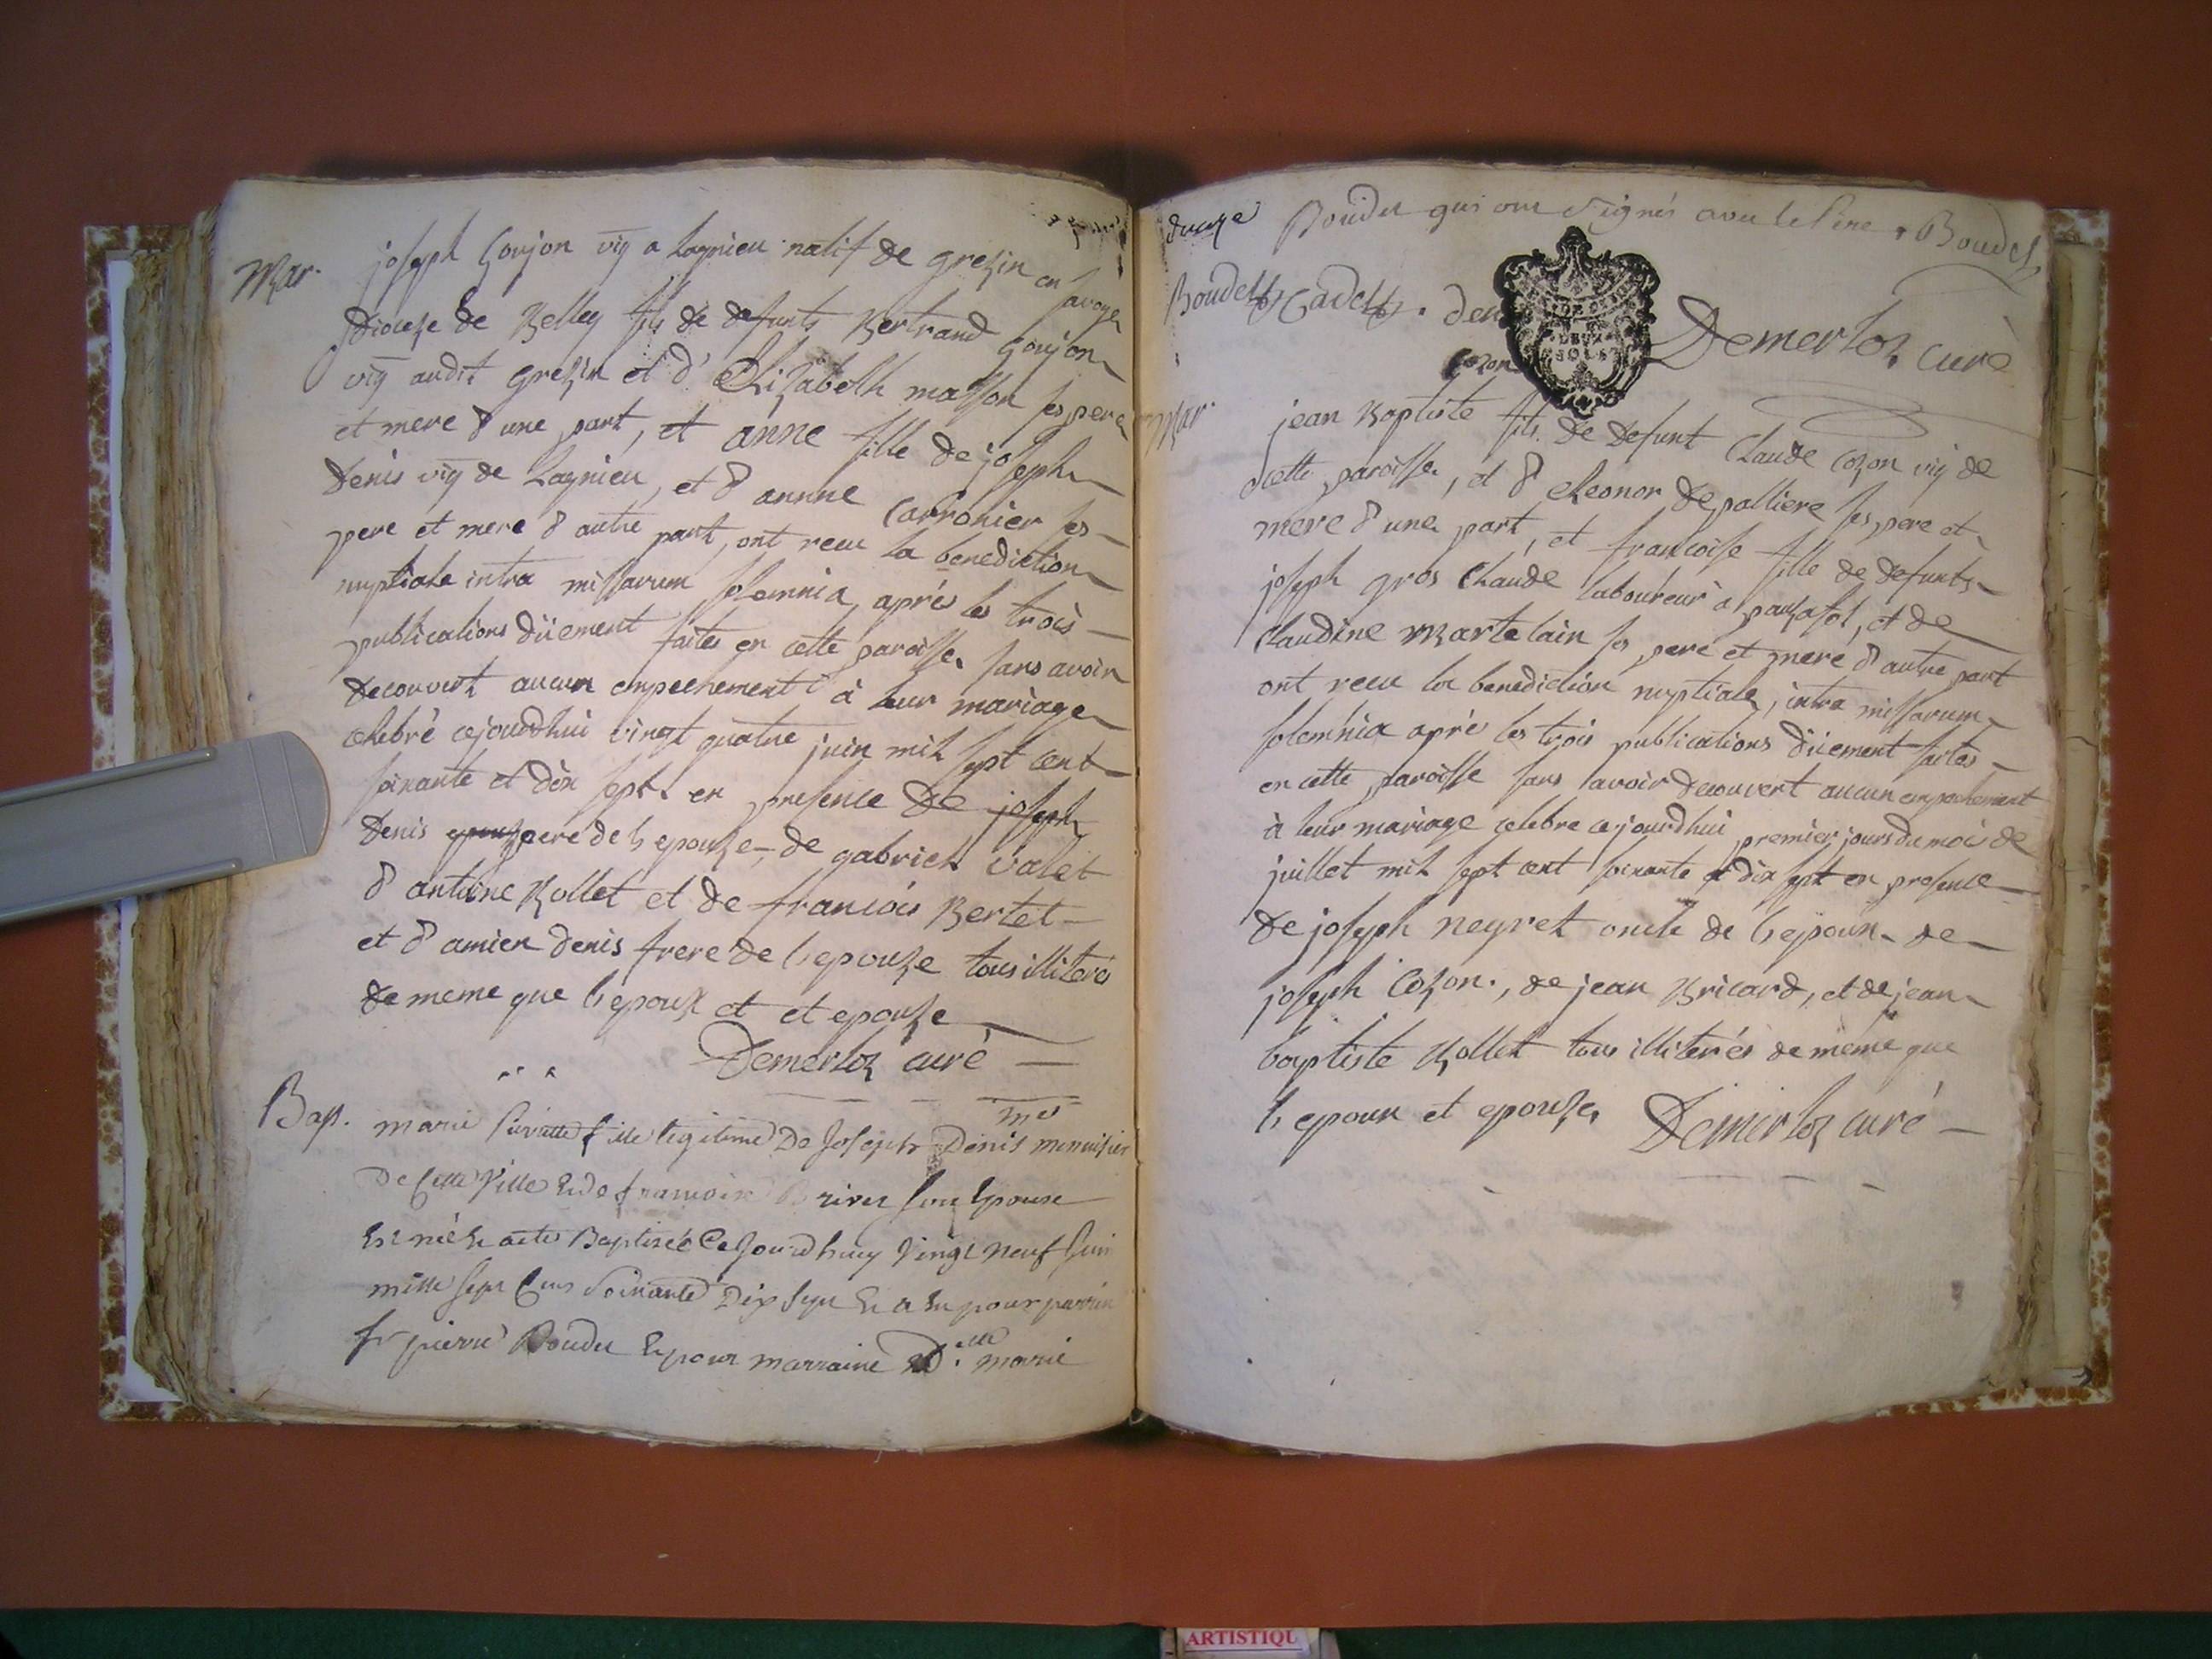 Mar. joseph Goujon vig a Lagnieu natif de grezin en savoye
Diocese de Belley fils de defunts Bertrand Goujon
vig audit grezin et d'Elizabeth masson ses pere
et mere d'une part, et anne fille de joseph
Denis vig de Lagnieu, et d'annne Carronier ses
pere et mere d'autre part, ont recu la benediction
nuptiale intra missarum solemnia, aprés les trois
publications düement faites en cette paroisse sans avoir
decouvert aucun empechement à leur mariage
celebré cejourdhui vingt quatre juin mil sept cent
soixante et dix sept. en presence de joseph
Denis pere de l'epouze, de gabriel valet
d'antoine Rollet et de francois Bertet
et d'amien denis frere de l'epouze tous illiterés
de meme que l'epoux et et epouze
Demerloz curé
Bap. marie fille legitime De Joseph Denis mtre menuisier
De cette Ville & de francoise son Epouse
Est née & acte Baptizée Cejourdhuy Vingt neuf Juin
mille sept Cens Soixante Dix Sept & a Eu pour parrin
sr pierre Boudet & pour marraine D.elle marie
Boudet qui ont Signés avec le Pere. Boudet
Boudet Cadet. den
DEUX SOLS
Demerloz curé
Cozon
Mar. jean Baptiste fils de defunt Claude Cozon vig de
cette paroisse, et d'eleonor depalliere ses pere et
mere d'une part, et francoise fille de defunts
joseph gros Claude laboureur à, et de
Claudine Martelain ses pere et mere d'autre part
ont recu la benediction nuptiale, intra missarum
solemnia aprés les trois publications düement faites
en cette paroisse sans avoir decouvert aucun empechement
à leur mariage celebre cejourdhui premier jours du mois de
juillet mil sept cent soixante et dix sept en presence
de joseph neyret oncle de l'epoux de
joseph Cozon., de jean Bricard, et de jean
baptiste Rollet tous illiterés de même que
l'epoux et epouze Demerloz curé
ARTISTIQU